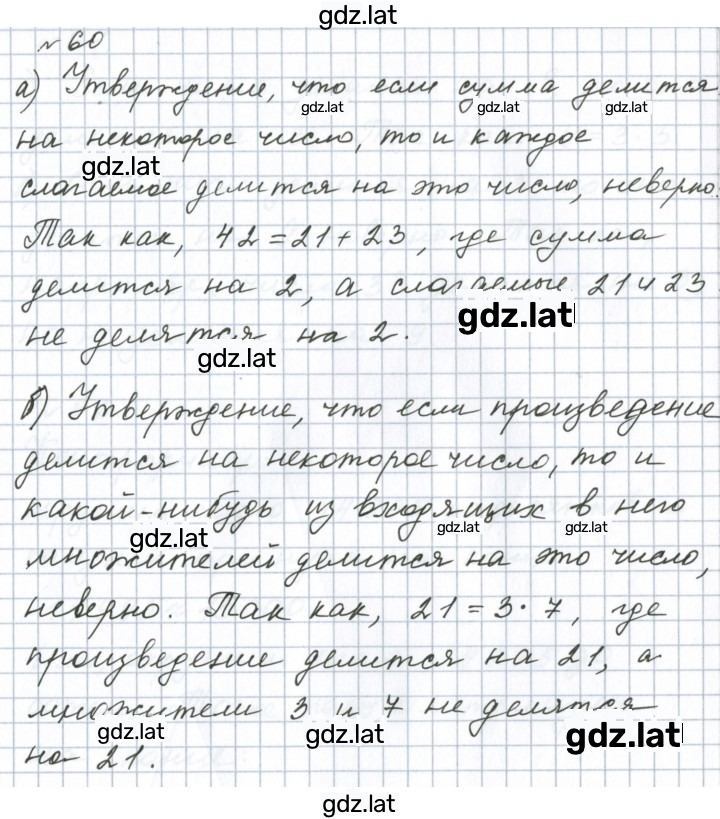 gdz.lat
№60
а) Утверждение, что если сумма делится
gdz.lat gdz.lat gdz.lat
на некоторое число, то и каждое
gdz.lat
слагаемое делится на это число, неверно.
Так как, 42 = 21 + 23, где сумма
делится на 2, а слагаемые 21 и 23
gdz.lat
не делятся на 2.
gdz.lat
б) Утверждение, что если произведение
делится на некоторое число, то и
какой-нибудь из входящих в него
gdz.lat gdz.lat gdz.lat
множителей делится на это число,
неверно. Так как, 21 = 3 · 7, где
произведение делится на 21, а
множители 3 и 7 не делятся
gdz.lat gdz.lat gdz.lat
на 21.
gdz.lat